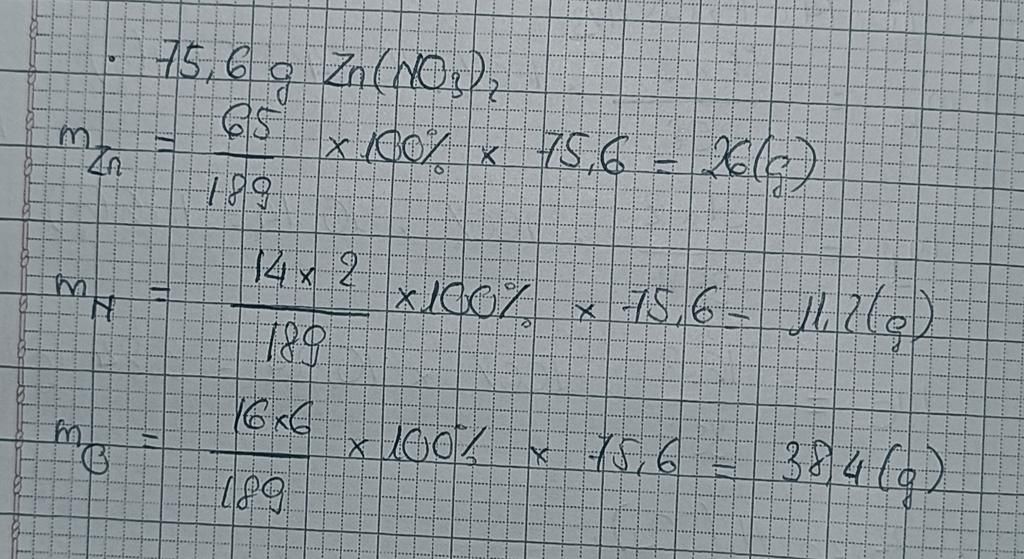 · 75,6 g Zn(NO₃)₂
m_Zn = 65/189 × 100% × 75,6 = 26(g)
m_N = 14 × 2/189 × 100% × 75,6 = 11,2(g)
m_O = 16×6/189 × 100% × 75,6 = 38,4(g)